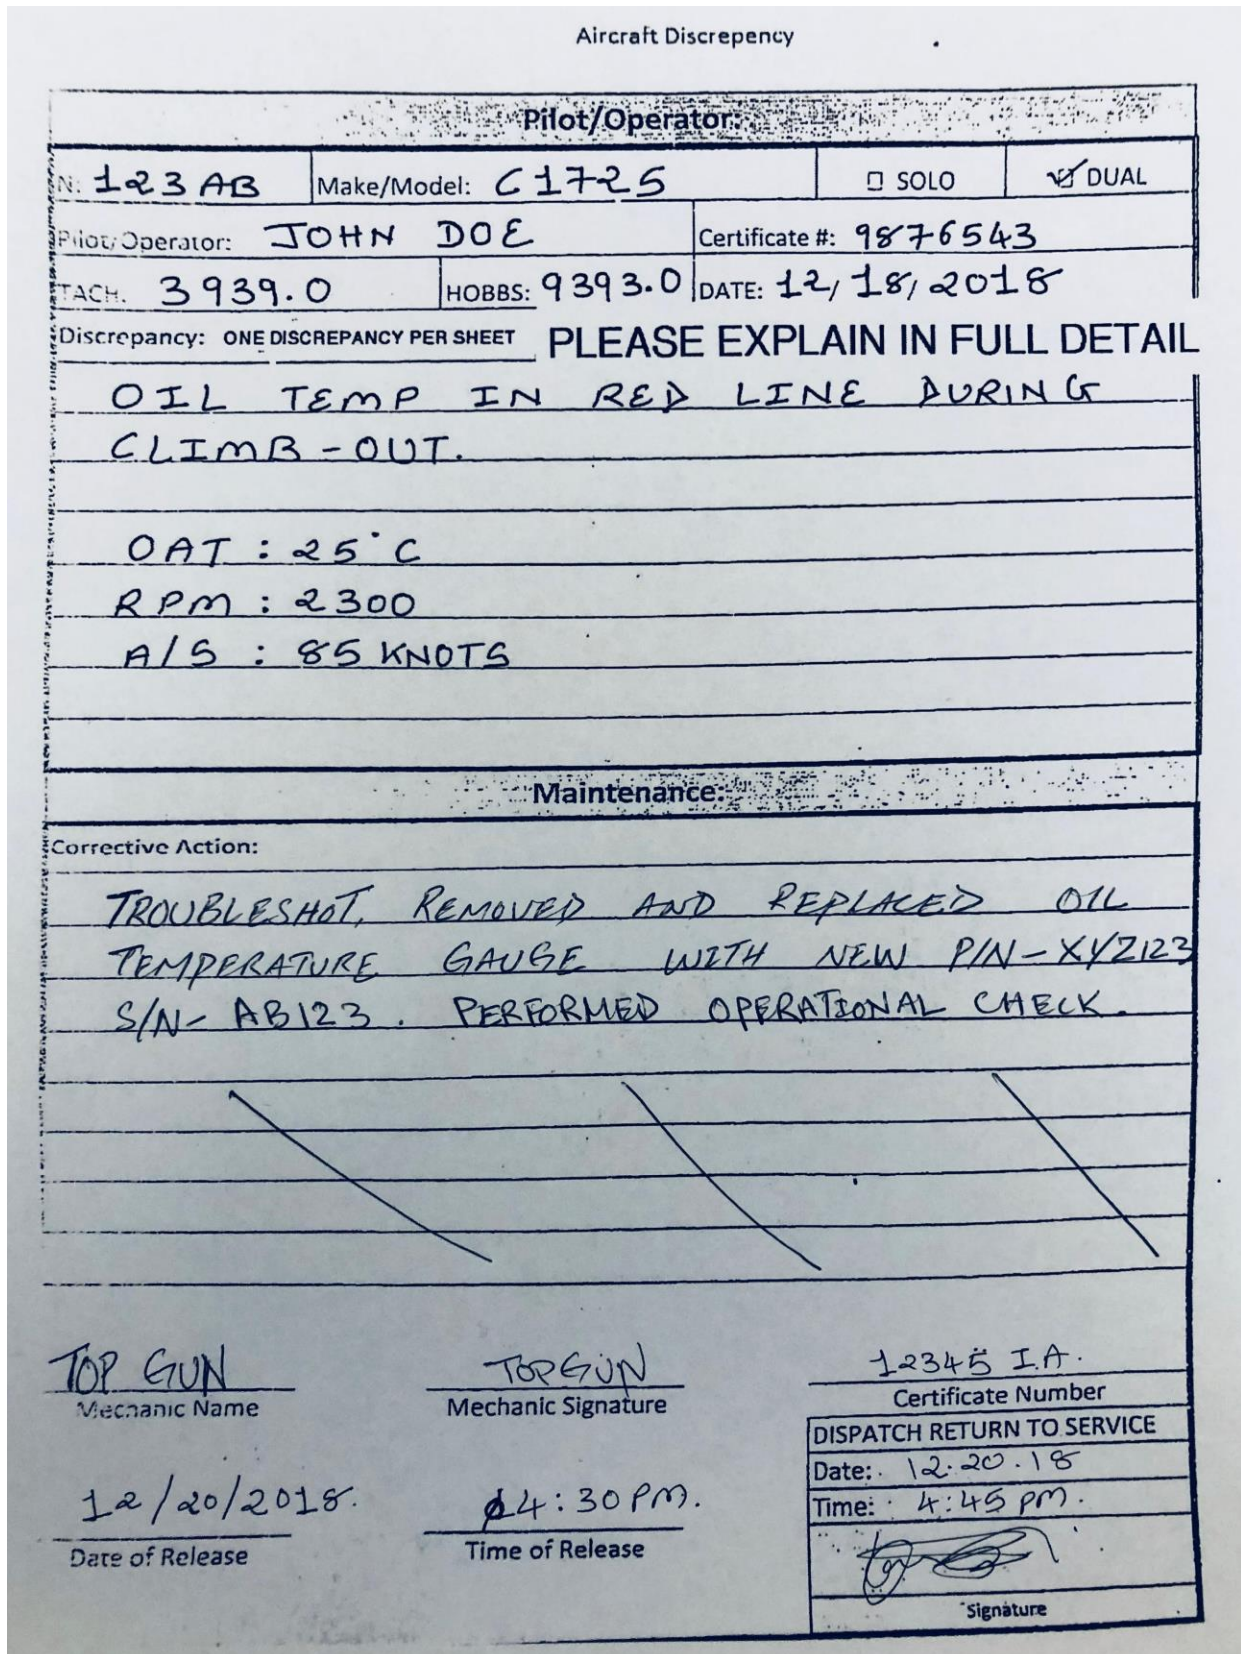 Aircraft Discrepency
Pilot/Operator:
N: 123AB Make/Model: C172S SOLO DUAL
Pilot/Operator: JOHN DOE Certificate #: 9876543
TACH. 3939.0 HOBBS: 9393.0 DATE: 12/18/2018
Discrepancy: ONE DISCREPANCY PER SHEET PLEASE EXPLAIN IN FULL DETAIL
OIL TEMP IN RED LINE DURING
CLIMB-OUT.
OAT : 25°C
RPM : 2300
A/S : 85 KNOTS
Maintenance:
Corrective Action:
TROUBLESHOT, REMOVED AND REPLACED OIL
TEMPERATURE GAUGE WITH NEW P/N-XYZ123
S/N- AB123. PERFORMED OPERATIONAL CHECK.
TOP GUN TOPGUN 12345 I.A.
Mechanic Name Mechanic Signature Certificate Number
DISPATCH RETURN TO SERVICE
Date: 12.20.18
12/20/2018. 04:30 PM. Time: 4:45 PM.
Date of Release Time of Release
Signature